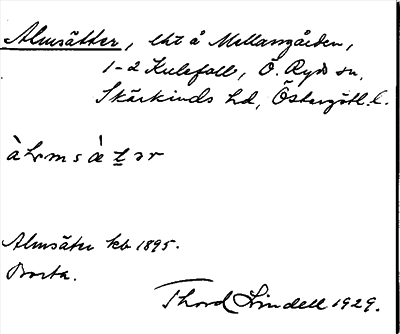 Almsätter, lht å Mellangården,
1-2 Kulefall, Ö. Ryds sn.
Skärkinds hd, Östergötl. l.
àLmsǻtər
Almsäter kb 1895.
Borta.
Thord Lindell 1929.